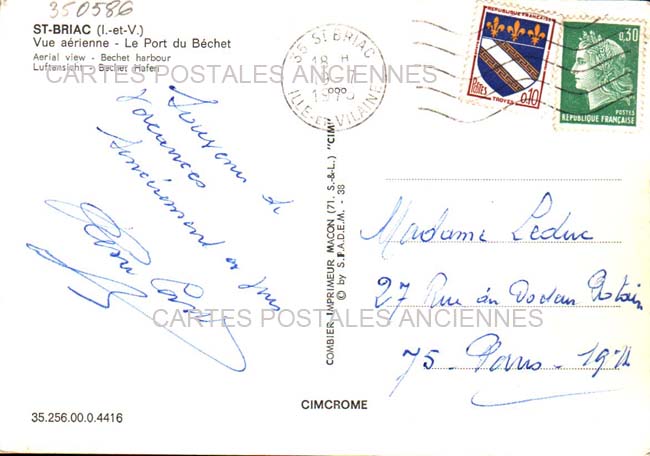 350586
ST-BRIAC (I.-et-V.)
Vue aérienne - Le Port du Béchet
Aerial view - Bechet harbour
Luftansicht - Bechet Hafen
CARTES POSTALES ANCIENNES
35 ST BRIAC
18 H
ILLE-ET-VILAINE
REPUBLIQUE FRANÇAISE
POSTES
TROYES
0,10
0,30
POSTES
REPUBLIQUE FRANÇAISE
Souvenir de
vacances
Sincèrement à
COMBIER IMPRIMEUR MACON (71. S.-&-L.) "CIM"
© by S.P.A.D.E.M. - 38
Madame Leduc
27 Rue du Docteur
75 - Paris -
CARTES POSTALES ANCIENNES
CIMCROME
35.256.00.0.4416